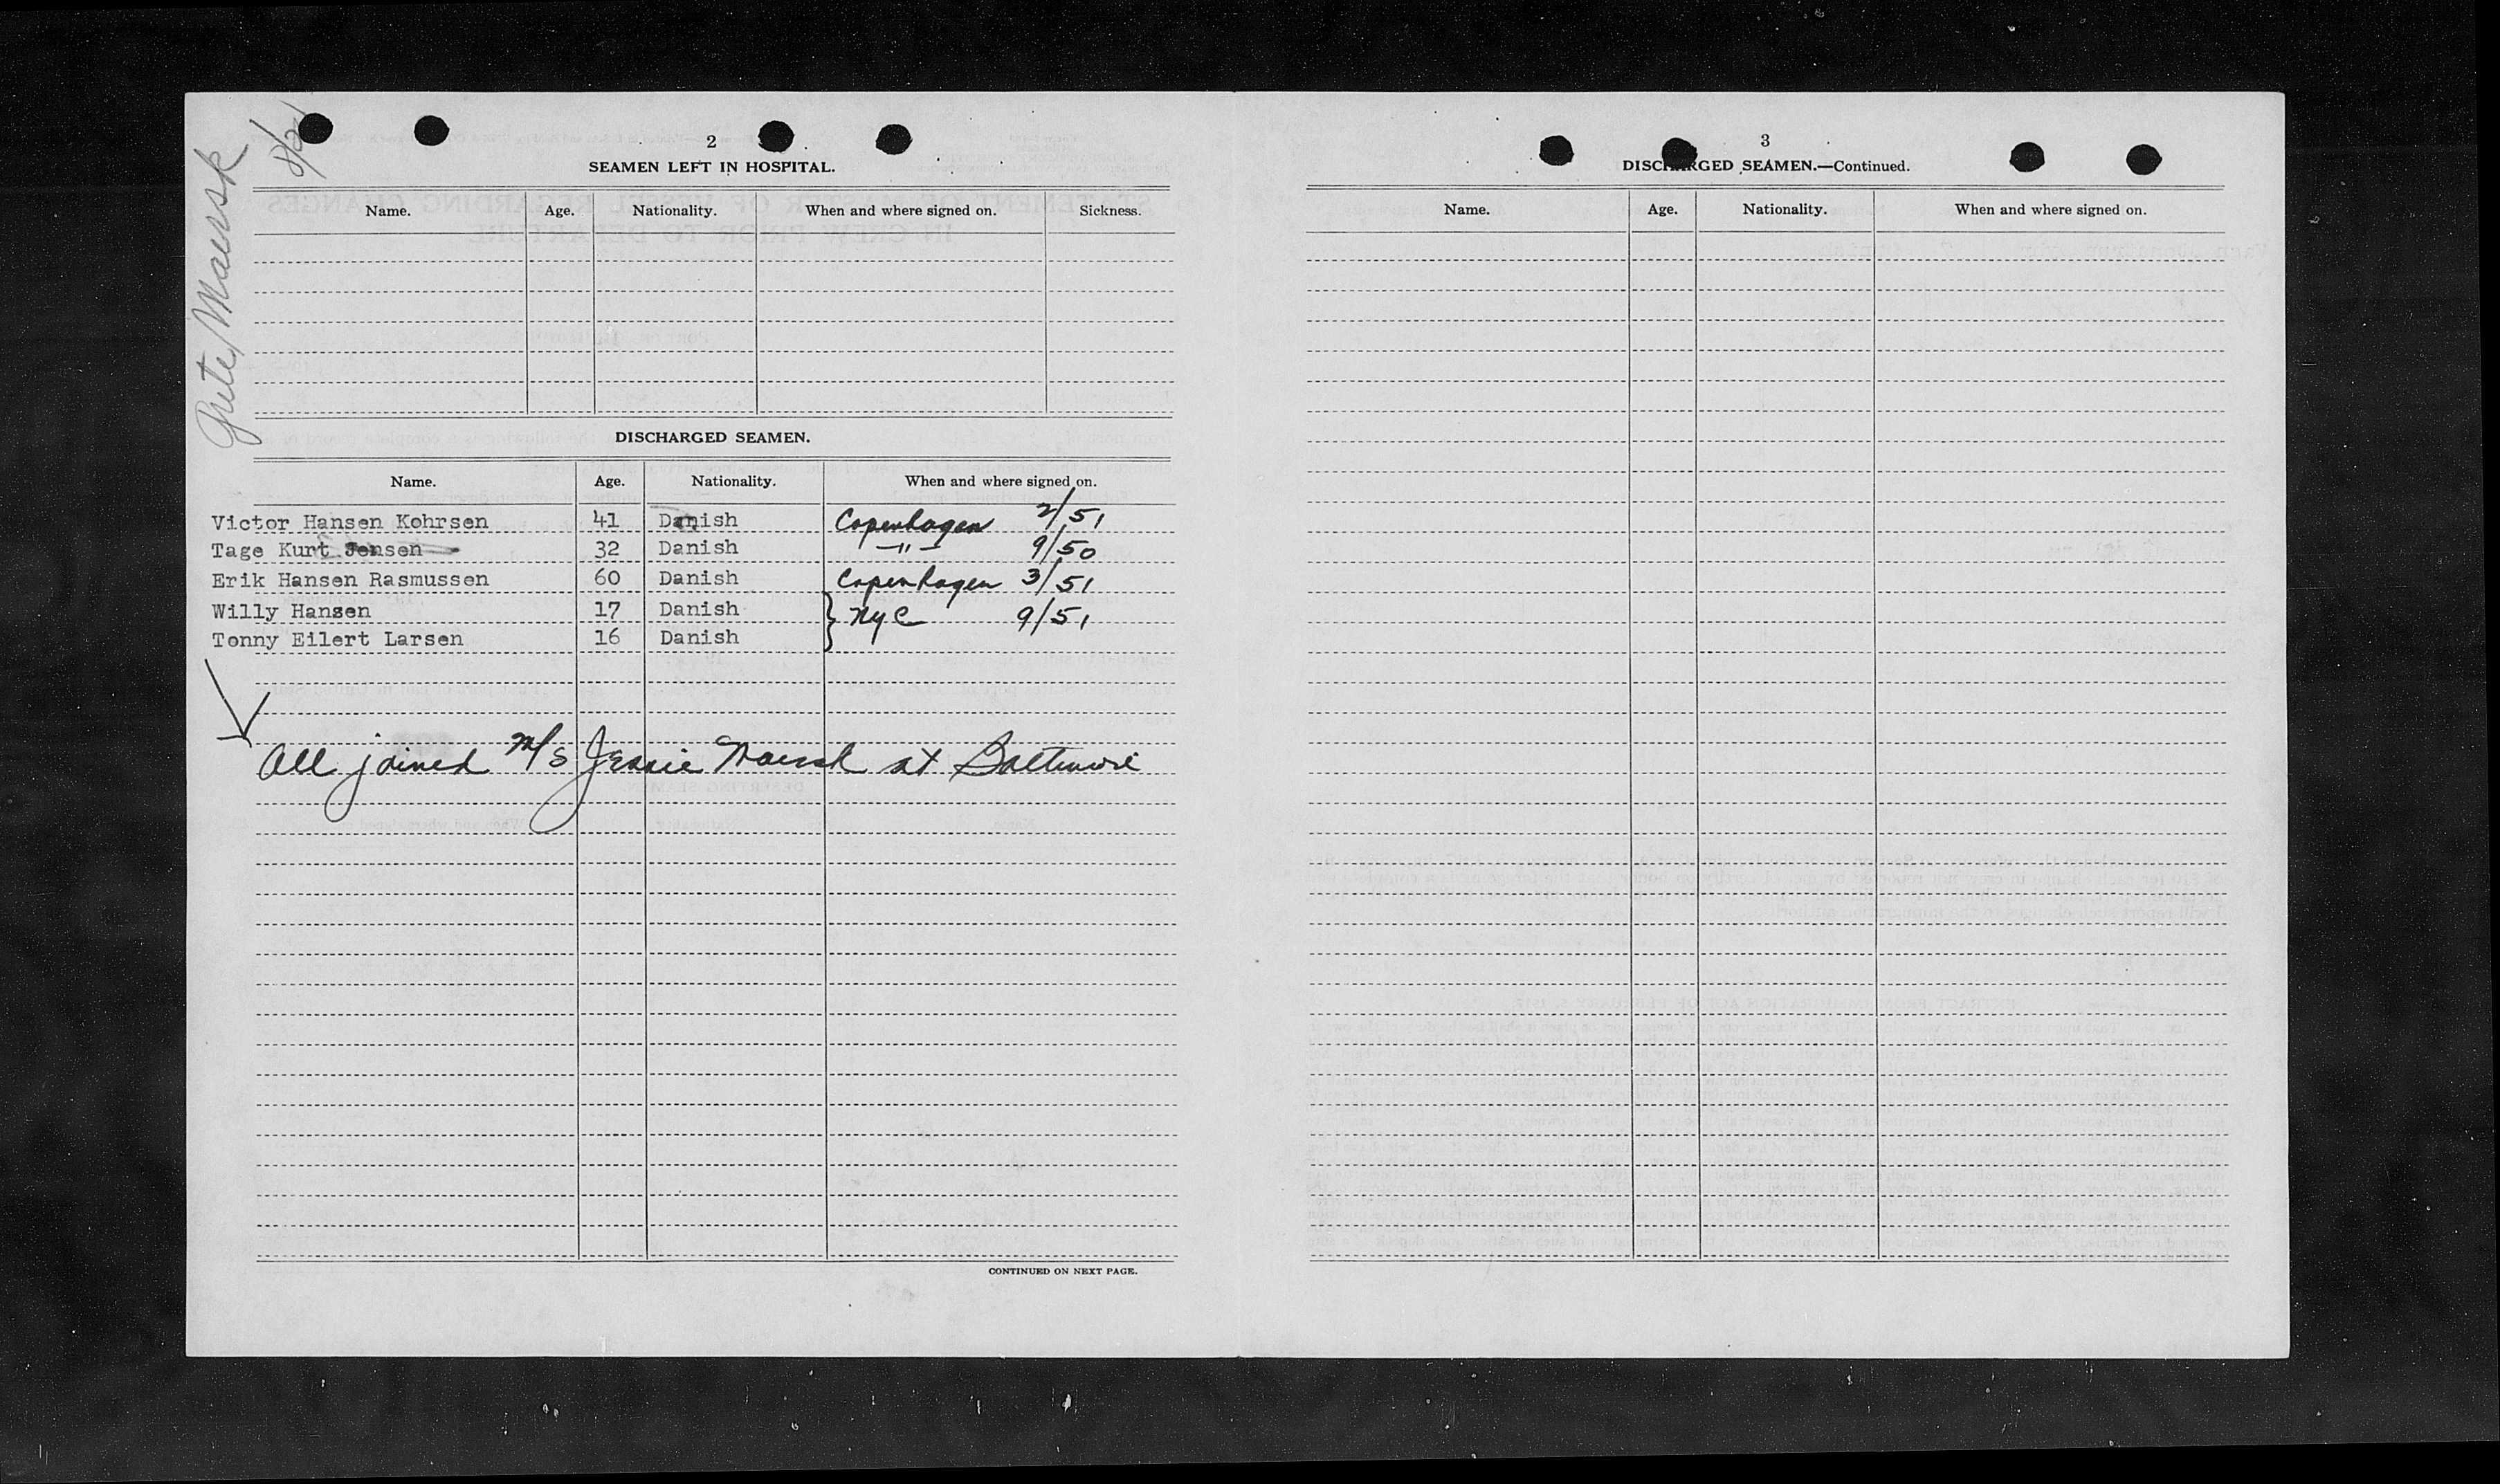 Grete Maersk
2
SEAMEN LEFT IN HOSPITAL.
Name. Age. Nationality. When and where signed on. Sickness.
DISCHARGED SEAMEN.
Name. Age. Nationality. When and where signed on.
Victor Hansen Kohrsen 41 Danish Copenhagen 2/51
Tage Kurt Jensen 32 Danish —"— 9/50
Erik Hansen Rasmussen 60 Danish Copenhagen 3/51
Willy Hansen 17 Danish } NYC 9/51
Tonny Eilert Larsen 16 Danish
All joined M/S Jessie Maersk at Baltimore
CONTINUED ON NEXT PAGE.
3
DISCHARGED SEAMEN.—Continued.
Name. Age. Nationality. When and where signed on.